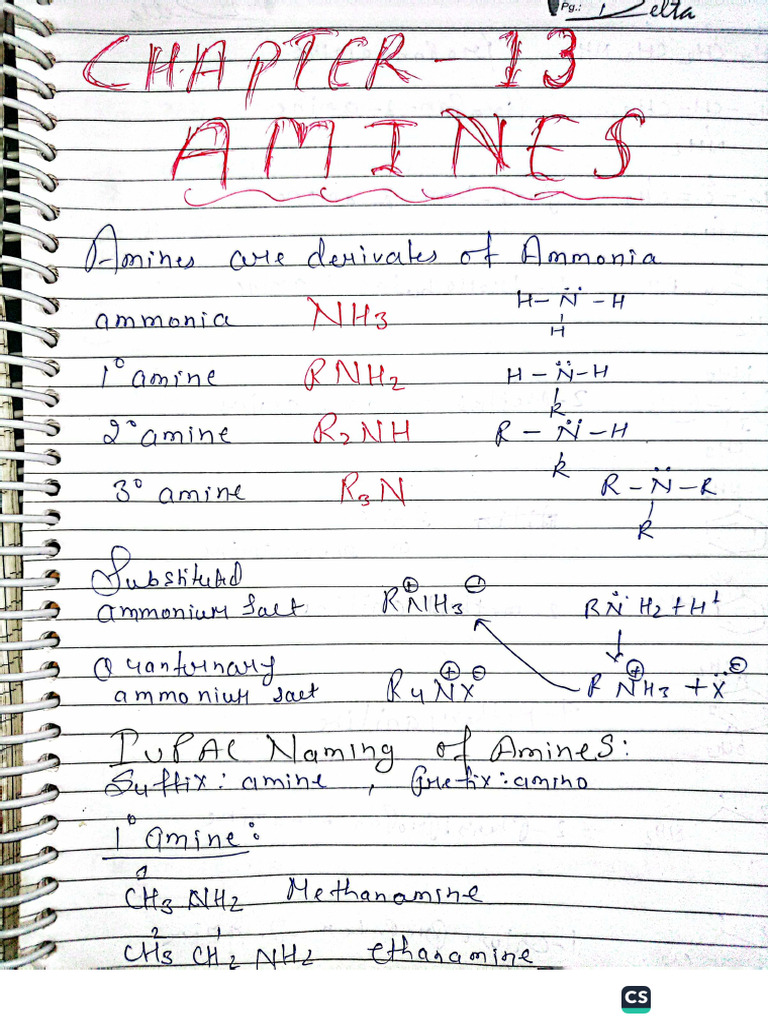 Pg.: Delta
CHAPTER-13
AMINES
Amines are derivates of Ammonia
ammonia NH3 H-N̈-H
H
1° amine RNH2 H-N̈-H
R
2° amine R2NH R-N̈-H
R
3° amine R3N R-N̈-R
R
Substituted
ammonium salt R⊕NH3 ⊖ RN̈H2+H+
Quanternary
ammonium salt R4N⊕X⊖ R N⊕H3 + Ẍ⊖
IUPAC Naming of Amines:
Suffix: amine , Prefix: amino
1° amine:
1
CH3 NH2 Methanamine
2 1
CH3 CH2 NH2 ethanamine
CS